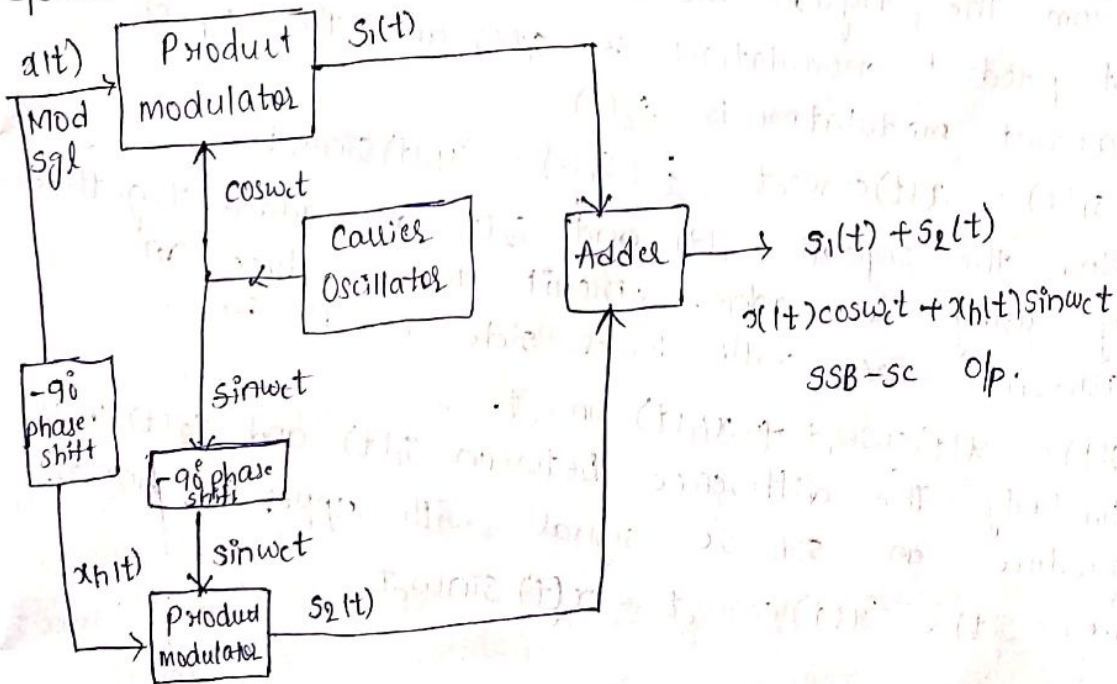 x(t)
Mod
sgl
Product
modulator
S1(t)
coswct
Carrier
Oscillator
Adder
S1(t) + S2(t)
x(t)coswct + xh(t)sinwct
SSB-SC O/p.
-90°
phase
shift
sinwct
-90° phase
shift
sinwct
xh(t)
Product
modulator
S2(t)